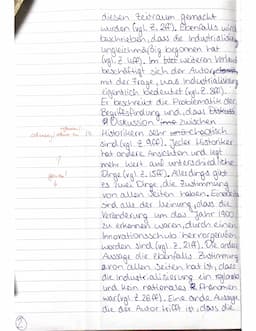 diesen Zeitraum gemacht
wurden (vgl. Z. 2ff). Ebenfalls wird
beschrieben, dass die Industrialisie
ungleichmäßig begonnen hat
(vgl. Z. 4ff). Im weiteren Verlauf
beschäftigt sich der Autor
mit der Frage, was Industrialisierung
eigentlich bedeutet (vgl. Z. 8ff).
Er beschreibt die Problematik der
Begriffsfindung und, dass
Diskussion zwischen
Historikern sehr chaotisch
sind (vgl. Z. 9ff). Jeder Historiker
hat andere Ansichten und legt
mehr Wert auf unterschiedliche
Dinge (vgl. Z. 15ff). Allerdings gibt
es zwei Dinge, die Zustimmung
von allen Seiten haben.
sind alle der Meinung, dass die
Veränderung um das Jahr 1900
zu erkennen waren, durch einen
Innovationsschub hervorgerufen
worden sind (vgl. Z. 21ff). Die andere
Aussage die ebenfalls Zustimmung
von allen Seiten hat ist, dass
die Industrialisierung ein
und kein nationales Phänomen
war (vgl. Z. 26ff). Eine andere Aussage
die der Autor trifft ist, dass die
2